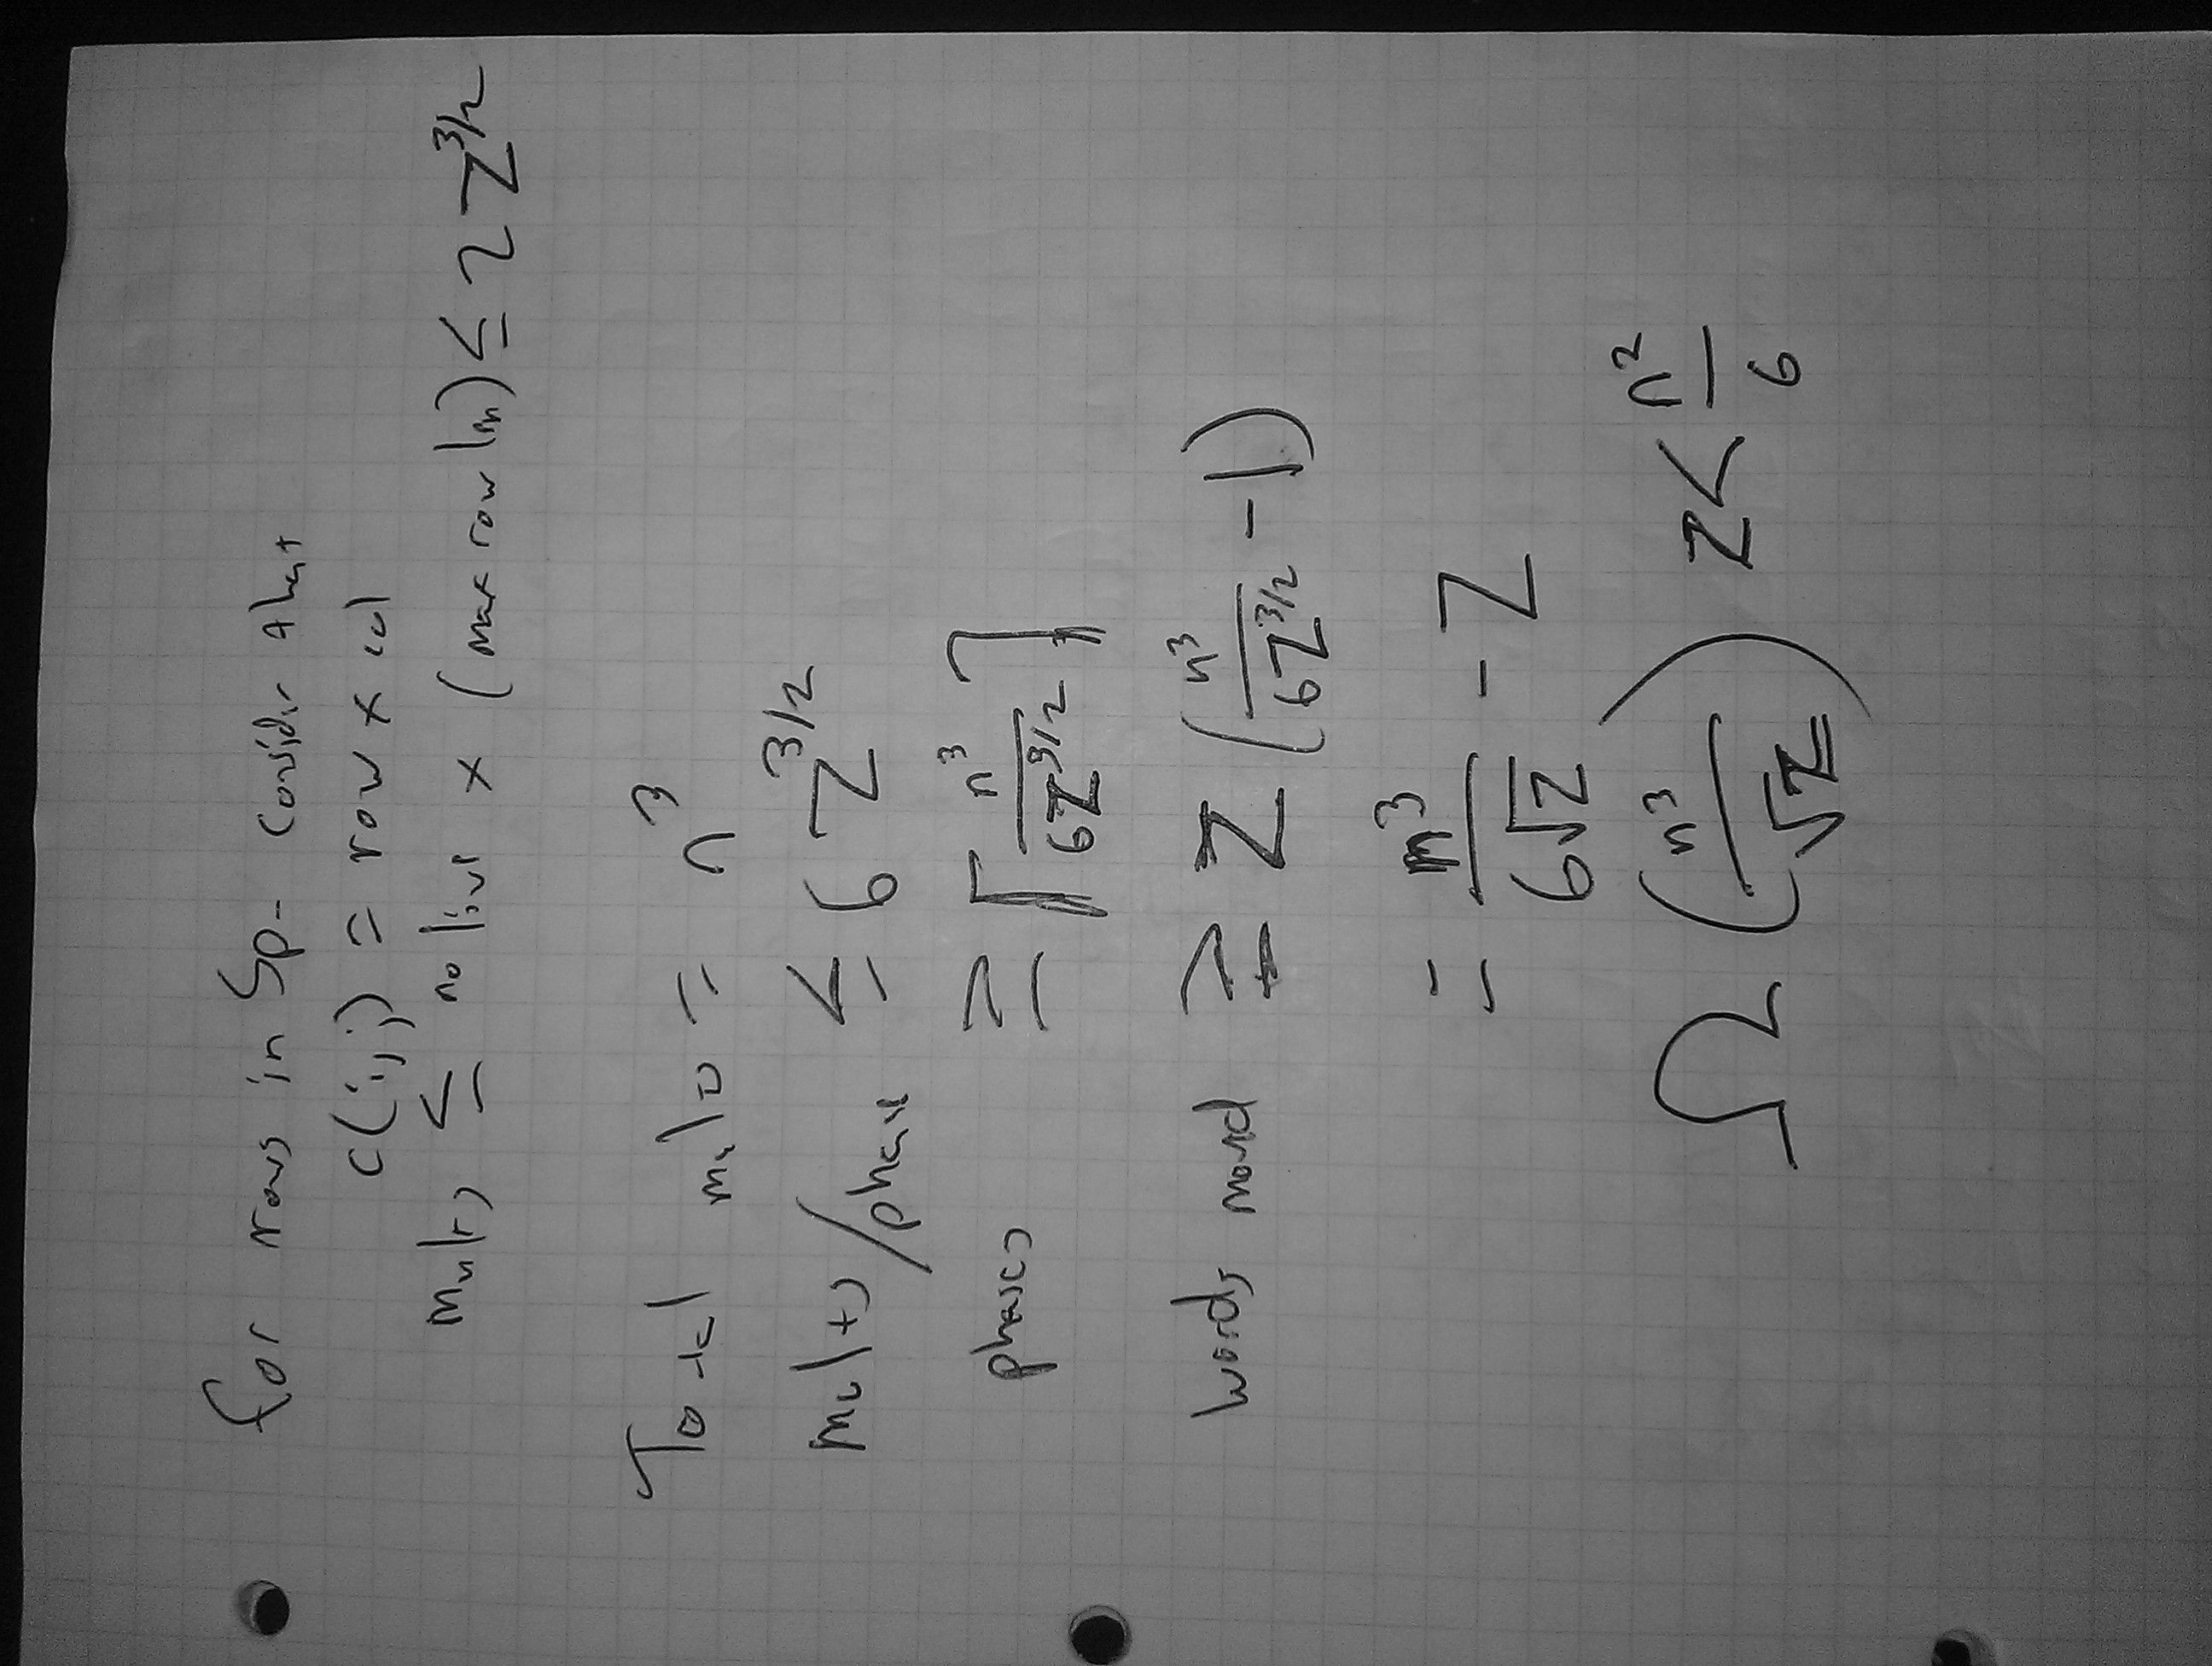 for rows in Sp - consider that
c(i,j) = row x col
mults ≤ no live x (max row len) ≤ 2 Z^3/2
Total mults = n^3
mults/phase ≤ 6 Z^3/2
phases ≥ ⌈n^3 / 6Z^3/2⌉
words moved ≥ Z (n^3 / 6Z^3/2 - 1)
= n^3 / 6√Z - Z
Ω (n^3 / √Z) Z < n^2 / 6